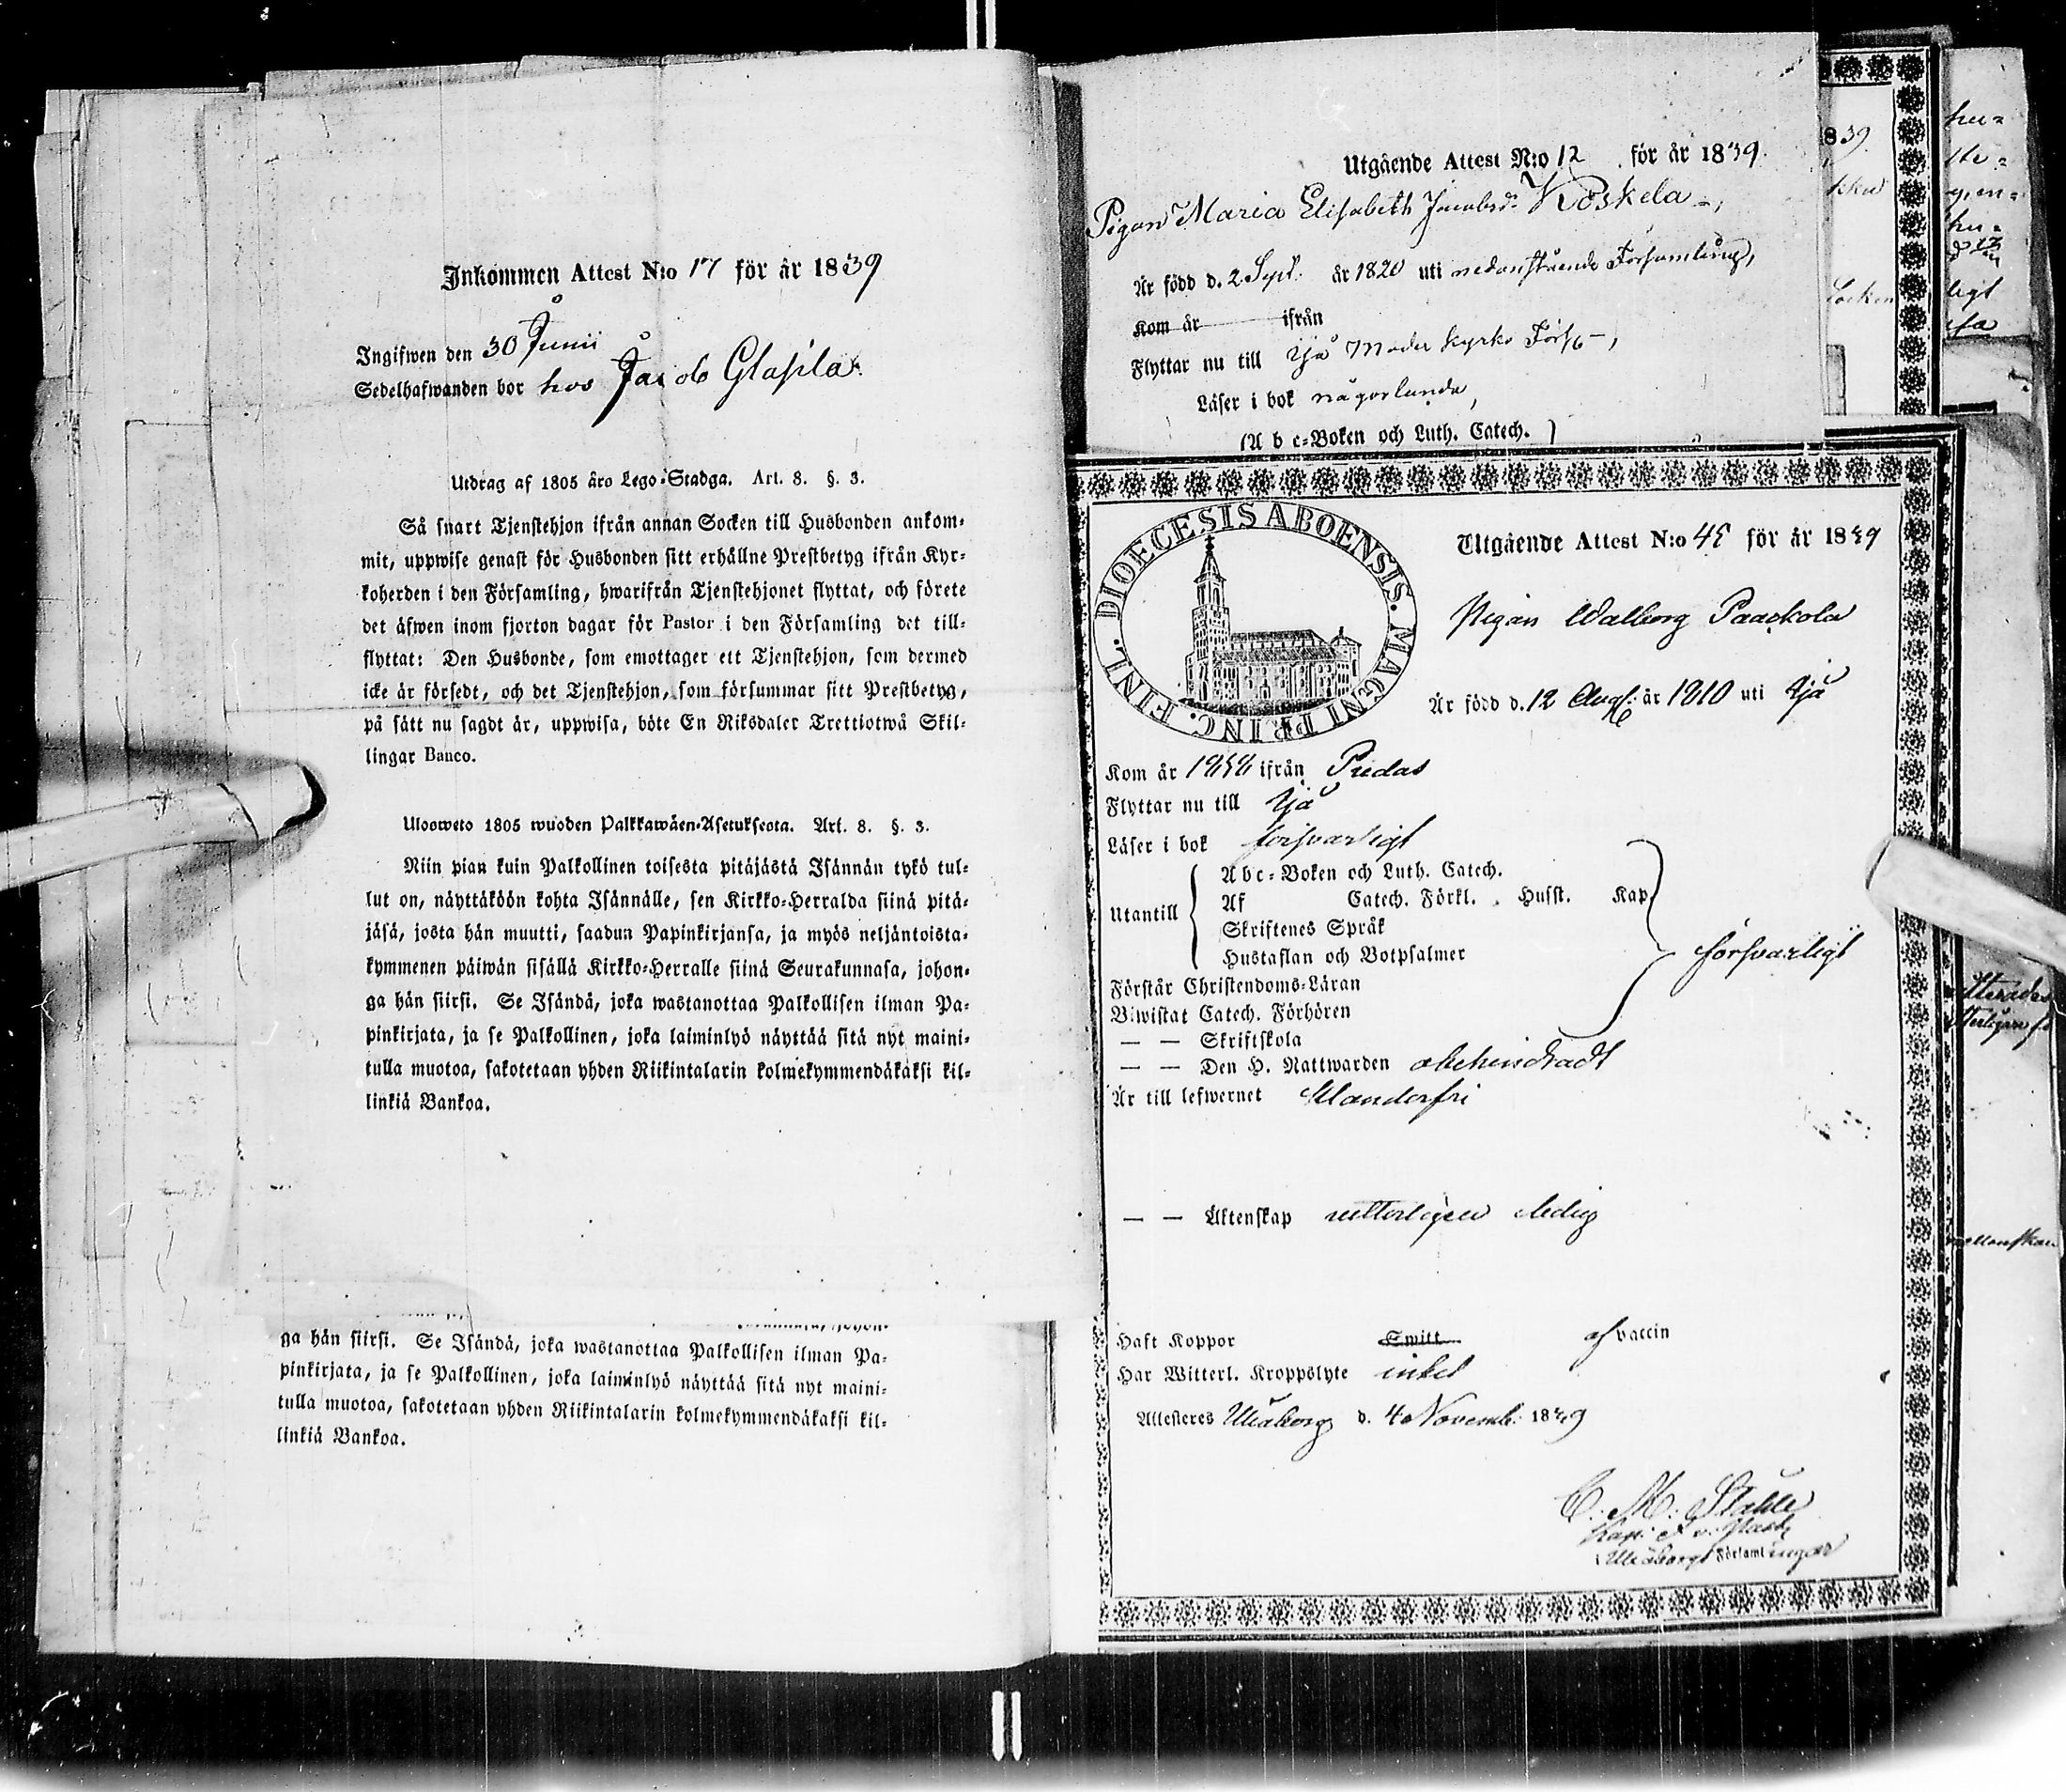 Inkommen Attest N:o 17 för år 1839
Ingifwen den 30 Junii
Sedelhafwanden bor hos Jacob Glasila
Utdrag af 1805 års Lego-Stadga. Art. 8. §. 3.
Så snart Tjenstehjon ifrån annan Socken till Husbonden ankom-
mit, uppwise genast för Husbonden sitt erhållne Prestbetyg ifrån Kyr-
koherden i den Församling, hwarifrån Tjenstehjonet flyttat, och förete
det äfwen inom fjorton dagar för Pastor i den Församling det till-
flyttat: Den Husbonde, som emottager ett Tjenstehjon, som dermed
icke är försedt, och det Tjenstehjon, som försummar sitt Prestbetyg,
på sätt nu sagdt är, uppwisa, böte En Riksdaler Trettiotwå Skil-
lingar Banco.
Ulosweto 1805 wuoden Palkkawäen-Asetuksesta. Art. 8. §. 3.
Niin pian kuin Palkollinen toisesta pitäjästä Isännän tykö tul-
lut on, näyttäköön kohta Isännälle, sen Kirkko-Herralda siinä pitä-
jäsä, josta hän muutti, saadun Papinkirjansa, ja myös neljäntoista-
kymmenen päiwän sisällä Kirkko-Herralle siinä Seurakunnasa, johon-
ga hän siirsi. Se Isändä, joka wastanottaa Palkollisen ilman Pa-
pinkirjata, ja se Palkollinen, joka laiminlyö näyttää sitä nyt maini-
tulla muotoa, sakotetaan yhden Riikintalarin kolmekymmendäkaksi kil-
linkiä Bankoa.
ga hän siirsi. Se Isändä, joka wastanottaa Palkollisen ilman Pa-
pinkirjata, ja se Palkollinen, joka laiminlyö näyttää sitä nyt maini-
tulla muotoa, sakotetaan yhden Riikintalarin kolmekymmendäkaksi kil-
linkiä Bankoa.
Utgående Attest N:o 12 för år 1839.
Pigan Maria Elisabeth Jacobsdr Koskela
Är född d. 2 Sept. år 1820 uti nedanstående Församling,
Kom år ifrån
Flyttar nu till Ijå Moder kyrko Förs.
Läser i bok någorlunda,
(A b c-Boken och Luth. Catech.)
DIOECESIS ABOENSIS. MAGNI PRINC. FINL.
Utgående Attest N:o 45 för år 1839
Pigan Walborg Paaskola
Är född d. 12 Aug. år 1810 uti Ijå
Kom år ifrån Pudas
Flyttar nu till Ijå
Läser i bok försvarligt
Utantill
Abc-Boken och Luth. Catech.
Af Catech. Förkl. Husst. Kap.
Skriftenes Språk
Hustaflan och Botpsalmer
försvarligt
Förstår Christendoms-Läran
Biwistat Catech. Förhören
— — Skriftskola
— — Den H. Nattwarden obehindradt
Är till lefwernet klanderfri
— — Äktenskap vetterligen ledig
Haft Koppor Smitt af vaccin
Har Witterl. Kroppslyte intet
Attesteres Uleåborg d. 4 Novemb: 1839
C. M. Ståhle
Kap: v. Past.
i Uleåborgs Församlingar
839